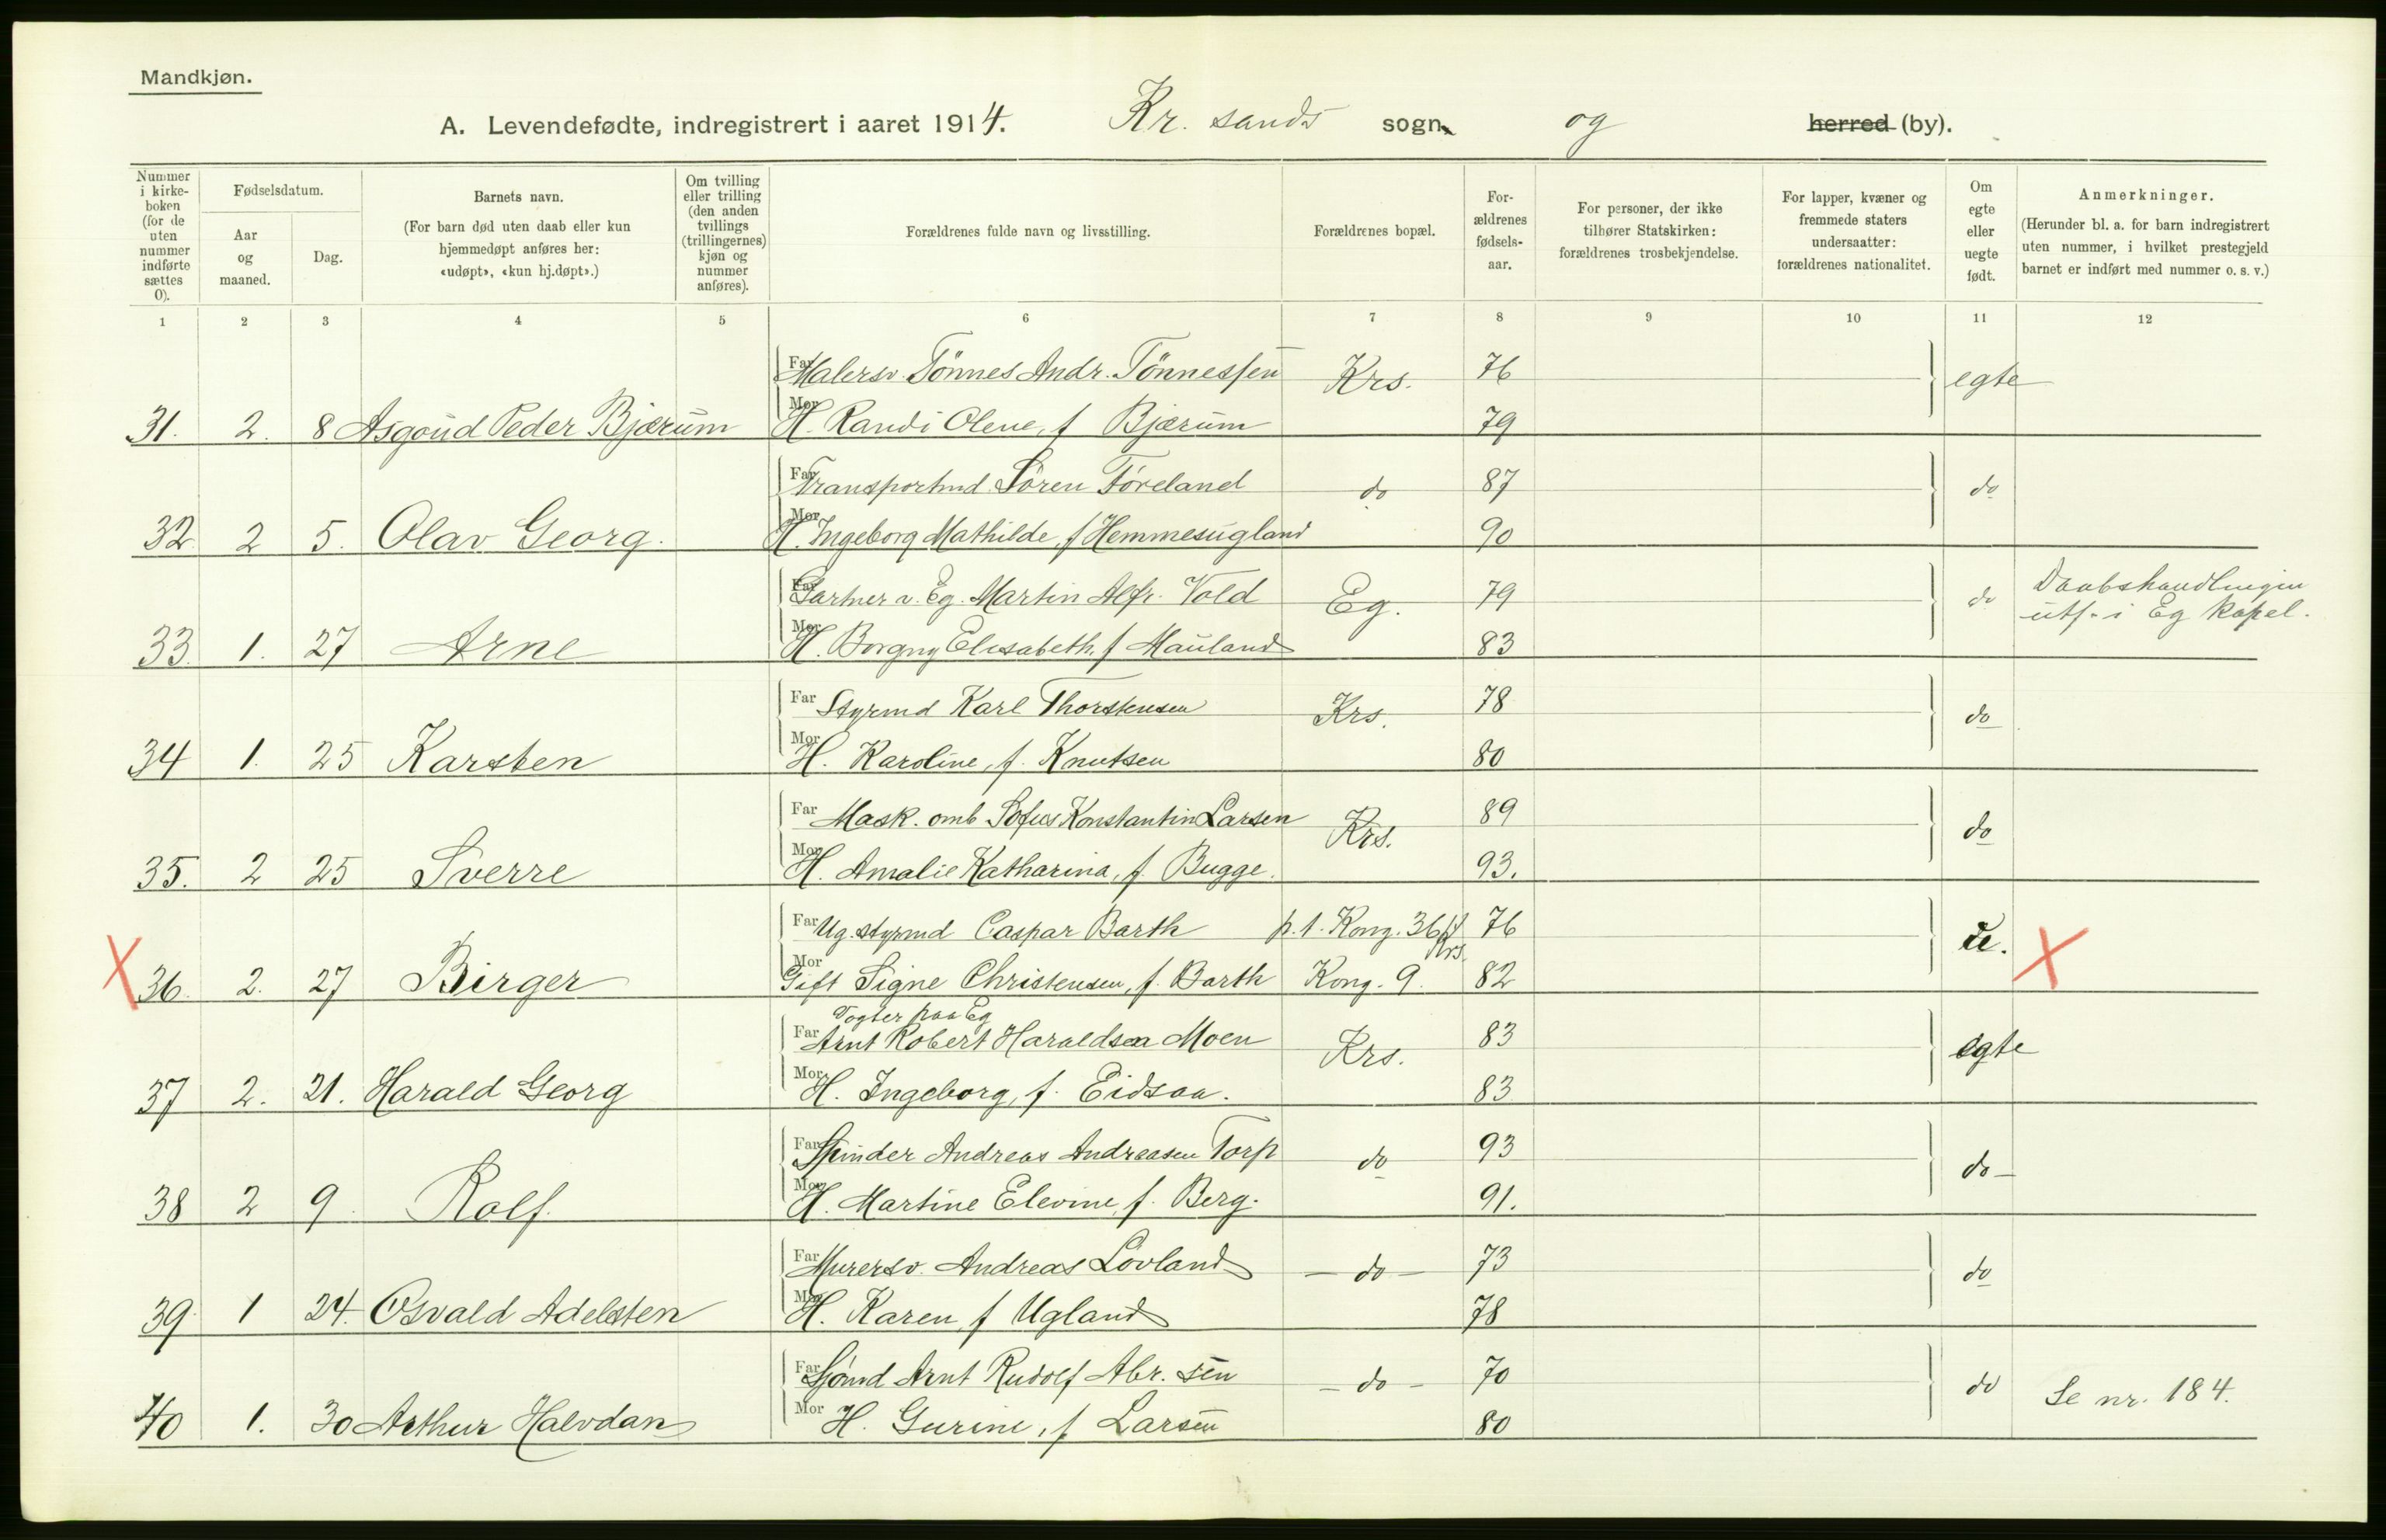 Mandkjøn.
A. Levendefødte, indregistrert i aaret 1914. Kr. sands sogn og herred (by).
Nummer i kirke-boken (for de uten nummer indførte sættes 0).
Fødselsdatum.
Aar og maaned.
Dag.
Barnets navn.
(For barn død uten daab eller kun hjemmedøpt anføres her: «udøpt», «kun hj.døpt».)
Om tvilling eller trilling (den anden tvillings (trillingernes) kjøn og nummer anføres).
Forældrenes fulde navn og livsstilling.
Forældrenes bopæl.
For-ældrenes fødsels-aar.
For personer, der ikke tilhører Statskirken: forældrenes trosbekjendelse.
For lapper, kvæner og fremmede staters undersaatter: forældrenes nationalitet.
Om egte eller uegte født.
Anmerkninger.
(Herunder bl. a. for barn indregistrert uten nummer, i hvilket prestegjeld barnet er indført med nummer o. s. v.)
1 2 3 4 5 6 7 8 9 10 11 12
Far Malersv. Tönnes Andr. Tönnessen Krs. 76 egte
31. 2. 8 Asgoud Peder Bjærum Mor H. Randi Olene, f Bjærum 79
Far Transportmd Sören Föreland do 87 do
32 2 5. Olav Georg. Mor H. Ingeborg Mathilde, f Hemmesugland 90
Far Gartner v. Eg. Martin Alfr. Vold Eg. 79 do Daabshandlingen
utf. i Eg kapel.
33. 1. 27 Arne Mor H. Borgny Elisabeth, f Mauland 83
Far Styrmd Karl Thorstensen Krs. 78 do
34 1. 25 Karsten Mor H. Karoline, f. Knutsen 80
Far Mask. omb Sofus Konstantin Larsen Krs. 89 do
35. 2 25 Sverre Mor H. Amalie Katharina, f. Bugge. 93.
Far Ug. styrmd Caspar Barth p. t. Kong. 36 Krs. 76 u.
36. 2. 27 Birger Mor Gift Signe Christensen, f. Barth Kong. 9. 82
Vogter paa Eg
Far Arnt Robert Haraldsen Moen Krs. 83 egte
37 2. 21. Harald Georg Mor H. Ingeborg, f. Eidsaa. 83
Far Spinder Andreas Andreasen Torp do 93 do
38 2 9. Rolf. Mor H. Martine Elevine, f. Berg. 91.
Far Murersv. Andreas Lövland do 73 do
39. 1 24. Osvald Adelsten Mor H. Karen, f Ugland 78
Far Sjömd Arnt Rudolf Abr. sen do 70 do Se nr. 184.
40 1. 30 Arthur Halvdan Mor H. Gurine, f Larsen 80